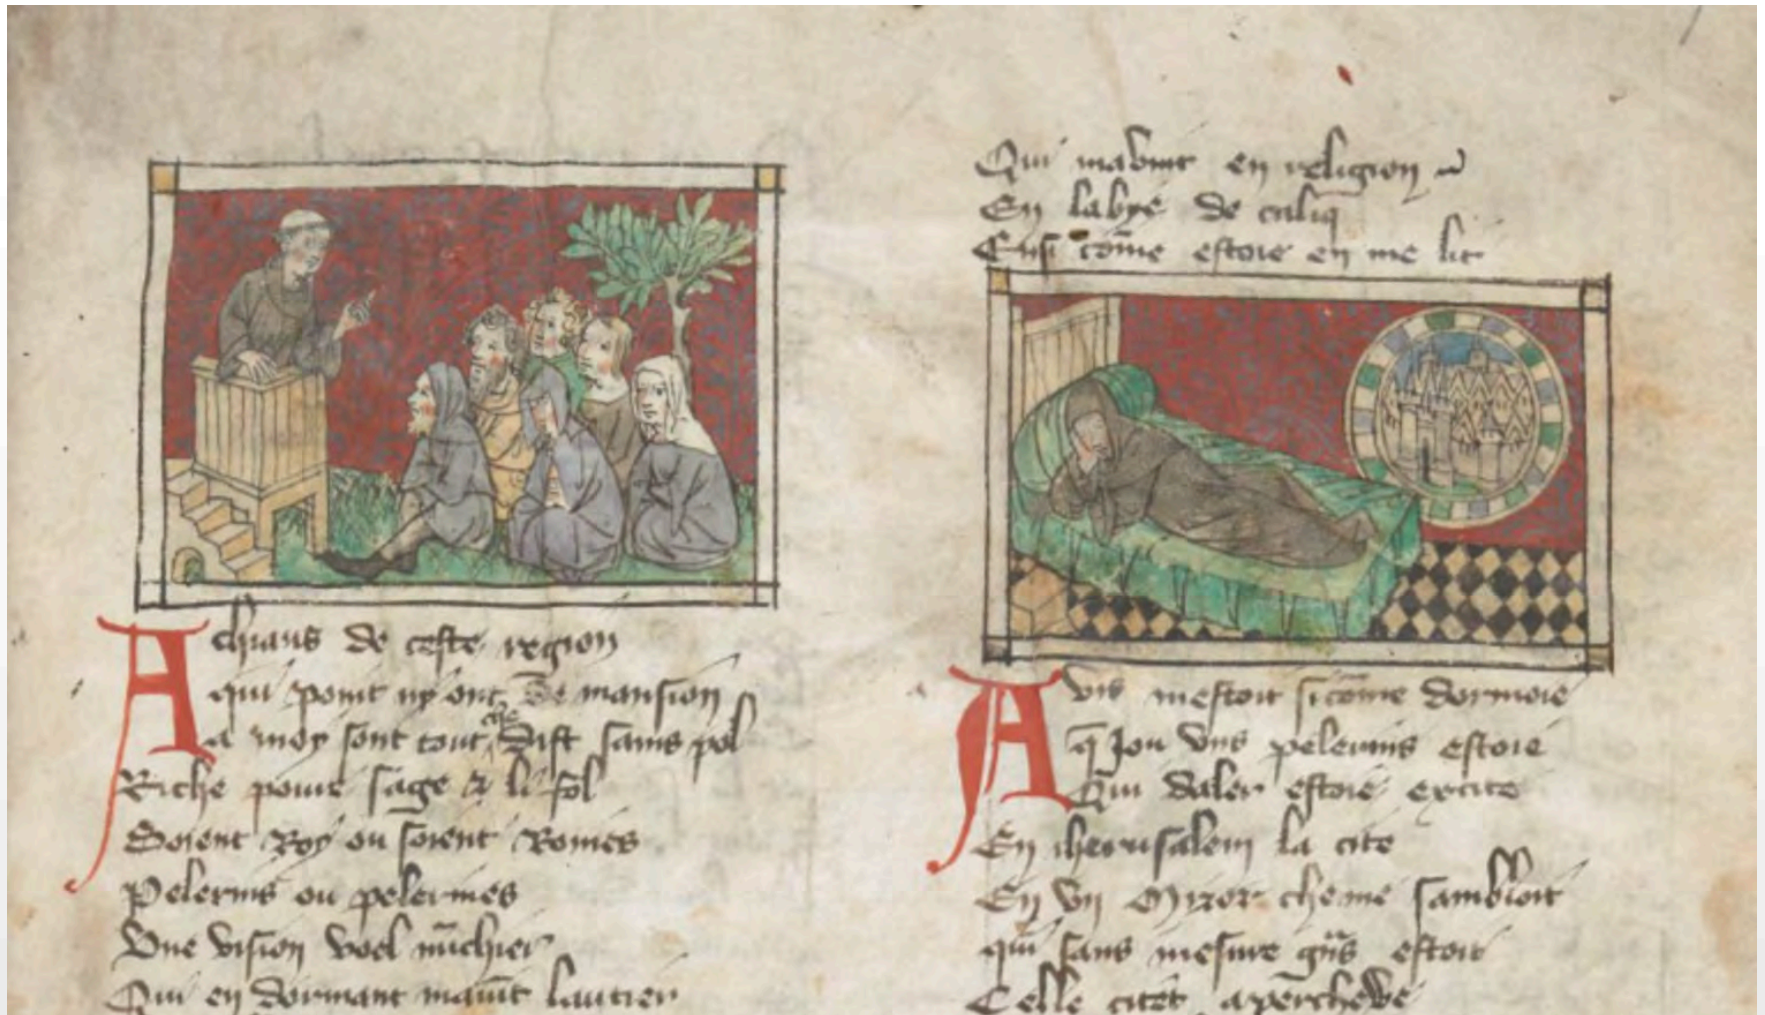 A chiaus de ceste region
qui point ny ont de mansion
a moy sont tout ce dist sains pol
Riche poure sage & li fol
Soient Roy ou soient Roines
Pelerins ou pelerines
Une vision voel nūchier
Qui en dormant mauīt lautrier
Qui mavint en religion
En labye de
Ensi cōme estoie en me lit
A vis mestoit si cōme dormoie
q̄ Jou uns pelerins estoie
Qui daler estoie excite
En iherusalem la cite
En un Miror che me sambloit
qui sans mesure gns estoit
Celle citet aperchewe